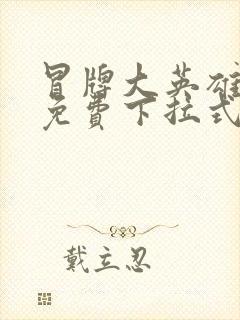 冒牌大英雄
免费下拉式
戴立忍